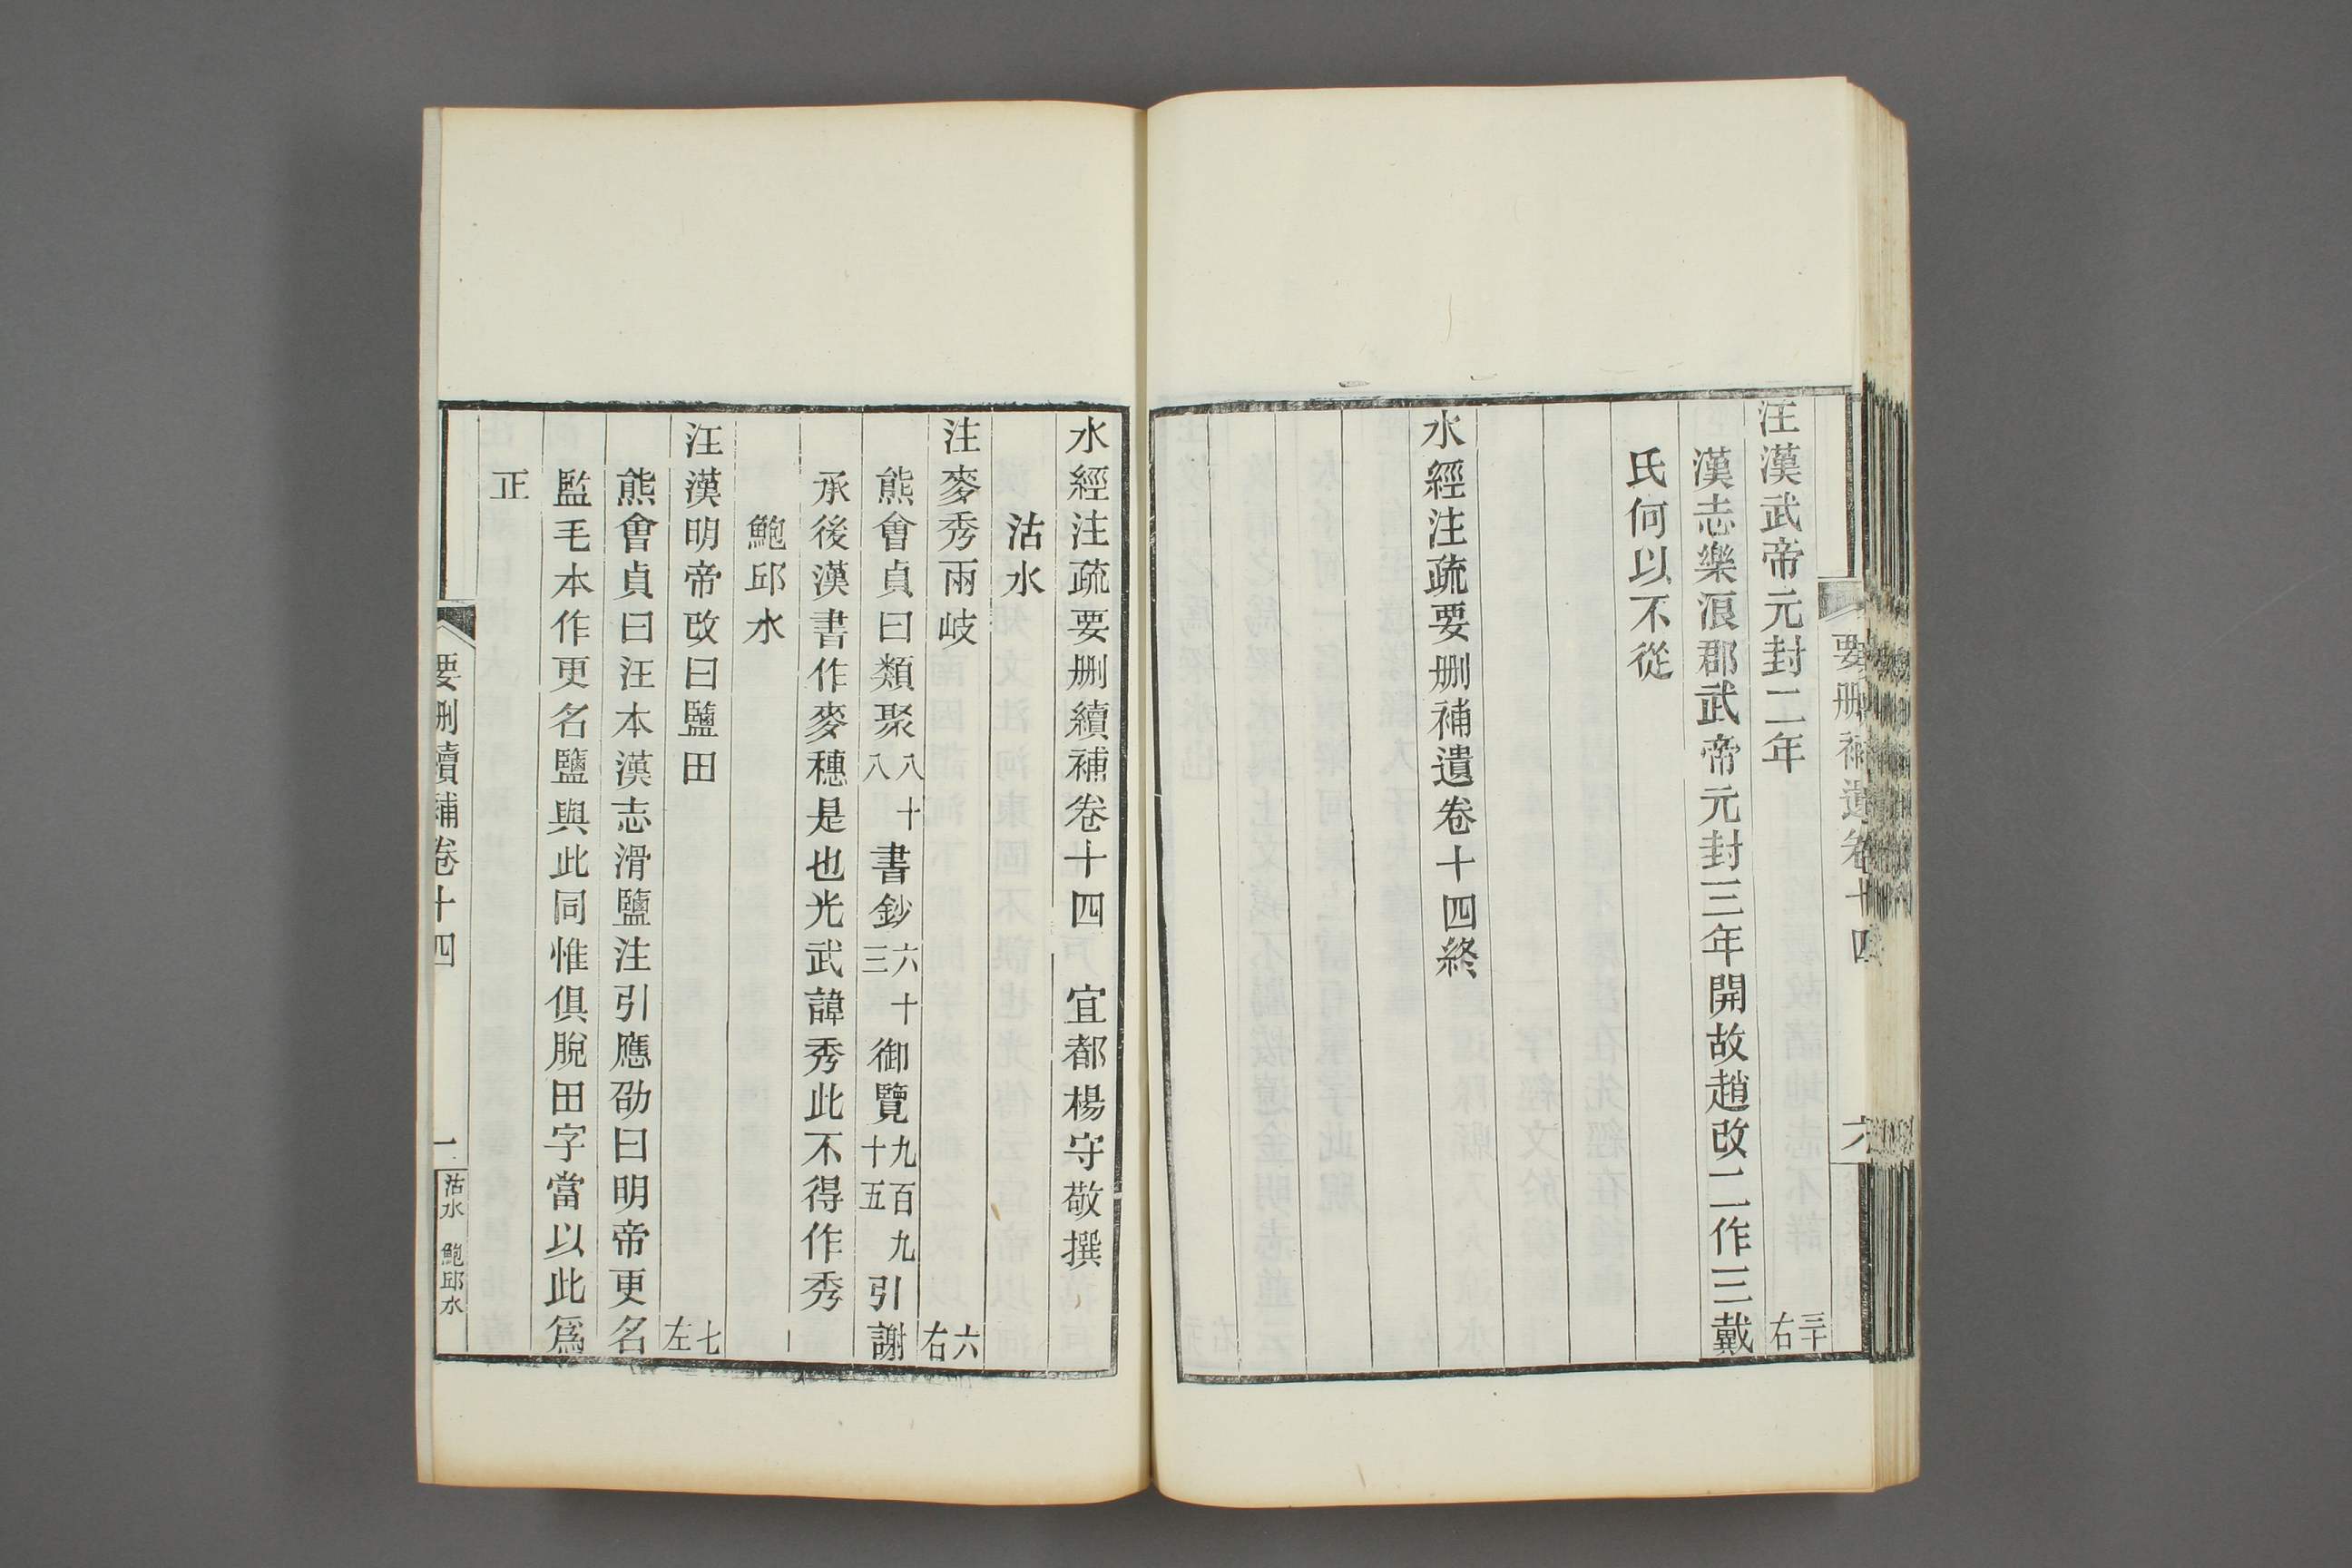 要刪補遺卷十四
六
注漢武帝元封二年 三十右
漢志樂浪郡武帝元封三年開故趙改二作三戴
氏何以不從
水經注疏要刪補遺卷十四終
水經注疏要刪續補卷十四 宜都楊守敬撰
沽水
注麥秀兩岐 六右
熊會貞曰類聚八十八書鈔六十三御覽九百九十五引謝
承後漢書作麥穗是也光武諱秀此不得作秀
鮑邱水
注漢明帝改曰鹽田 七左
熊會貞曰汪本漢志滑鹽注引應劭曰明帝更名
監毛本作更名鹽與此同惟俱脫田字當以此爲
正
要刪續補卷十四
一
沽水 鮑邱水